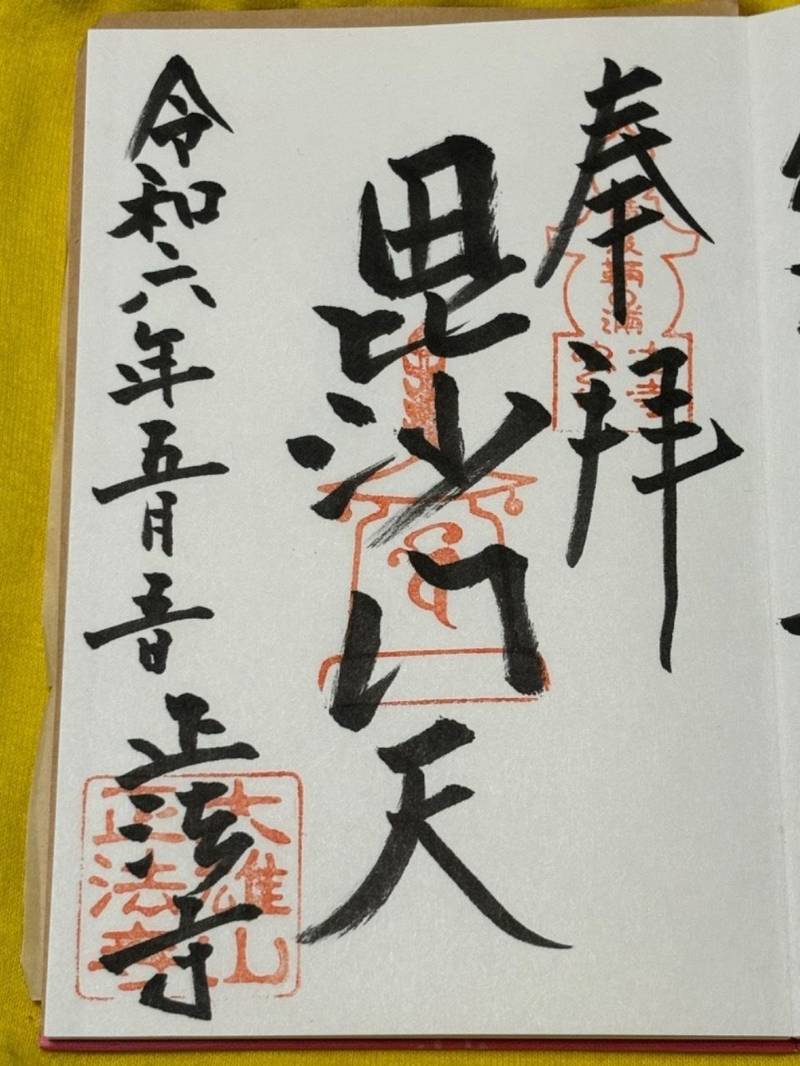 奉拝
毘沙門天
令和六年五月五日
正法寺
大雄山
正法寺
鞆の浦